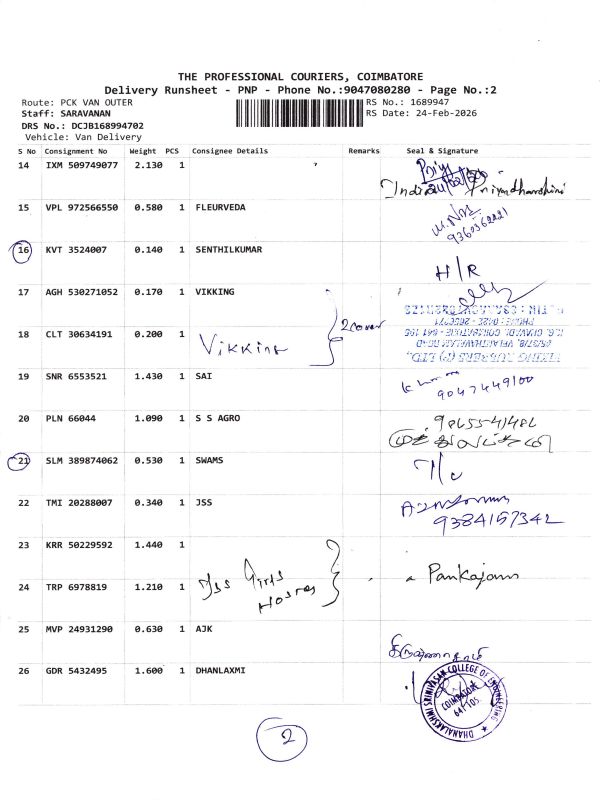 THE PROFESSIONAL COURIERS, COIMBATORE
Delivery Runsheet - PNP - Phone No.:9047080280 - Page No.:2
Route: PCK VAN OUTER RS No.: 1689947
Staff: SARAVANAN RS Date: 24-Feb-2026
DRS No.: DCJB168994702
Vehicle: Van Delivery
S No Consignment No Weight PCS Consignee Details Remarks Seal & Signature
14 IXM 509749077 2.130 1
15 VPL 972566550 0.580 1 FLEURVEDA
16 KVT 3524007 0.140 1 SENTHILKUMAR H/R
17 AGH 530271052 0.170 1 VIKKING
2 cover
18 CLT 30634191 0.200 1 Vikking
19 SNR 6553521 1.430 1 SAI
9047449100
20 PLN 66044 1.090 1 S S AGRO
21 SLM 389874062 0.530 1 SWAMS
22 TMI 20288007 0.340 1 JSS
9384157342
23 KRR 50229592 1.440 1
24 TRP 6978819 1.210 1 Jss Girls Pankajam
25 MVP 24931290 0.630 1 AJK
26 GDR 5432495 1.600 1 DHANLAXMI
DHANALAKSHMI SRINIVASAN COLLEGE OF ENGINEERING
COIMBATORE
641 105
2